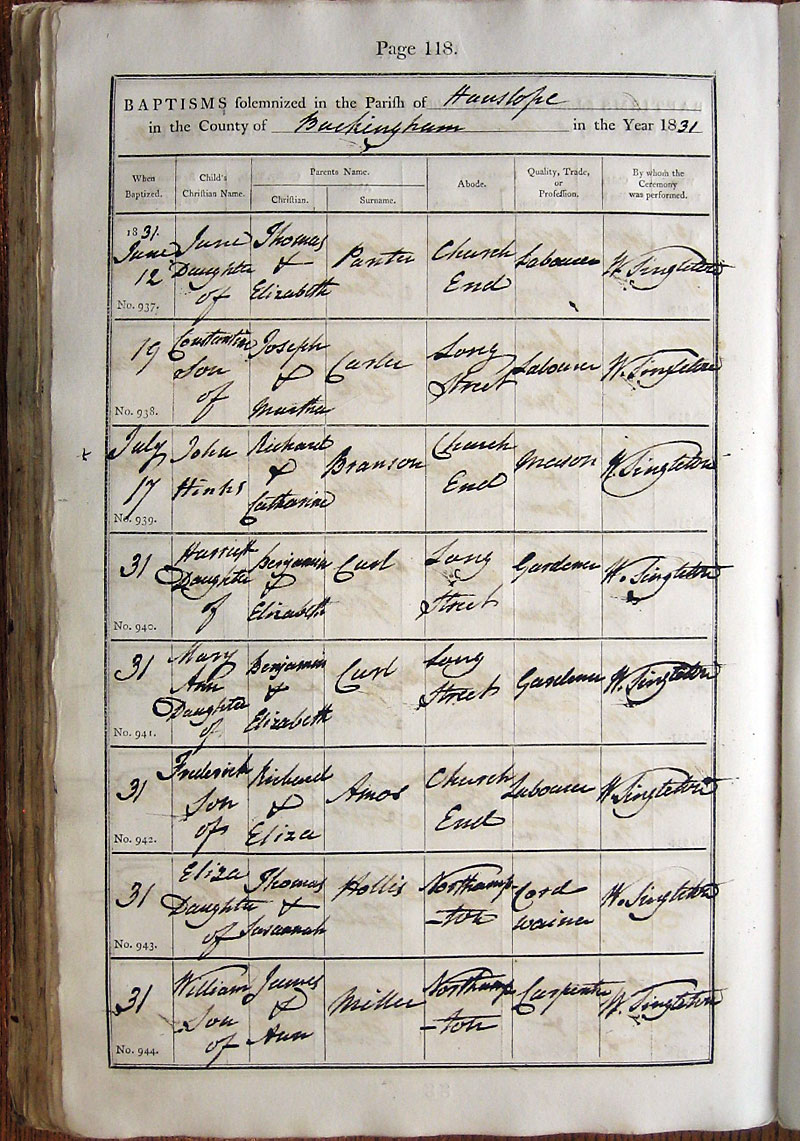 Page 118.
BAPTISMS solemnized in the Parish of Hanslope
in the County of Buckingham in the Year 1831
When Baptized. Child's Christian Name. Parents Name. Christian. Surname. Abode. Quality, Trade, or Profession. By whom the Ceremony was performed.
1831. June 12 No. 937. Jane Daughter of Thomas & Elizabeth Panter Church End Labourer W. Singleton
19 No. 938. Constantine Son of Joseph & Martha Carter Long Street Labourer W. Singleton
July 17 No. 939. John Hinks Richard & Catharine Branson Church End Mason W. Singleton
31 No. 940. Harriet Daughter of Benjamin & Elizabeth Curl Long Street Gardener W. Singleton
31 No. 941. Mary Ann Daughter of Benjamin & Elizabeth Curl Long Street Gardener W. Singleton
31 No. 942. Frederick Son of Richard & Eliza Amos Church End Labourer W. Singleton
31 No. 943. Eliza Daughter of Thomas & Susannah Hollis Northamp-ton Cord wainer W. Singleton
31 No. 944. William Son of James & Ann Miller Northamp-ton Carpenter W. Singleton